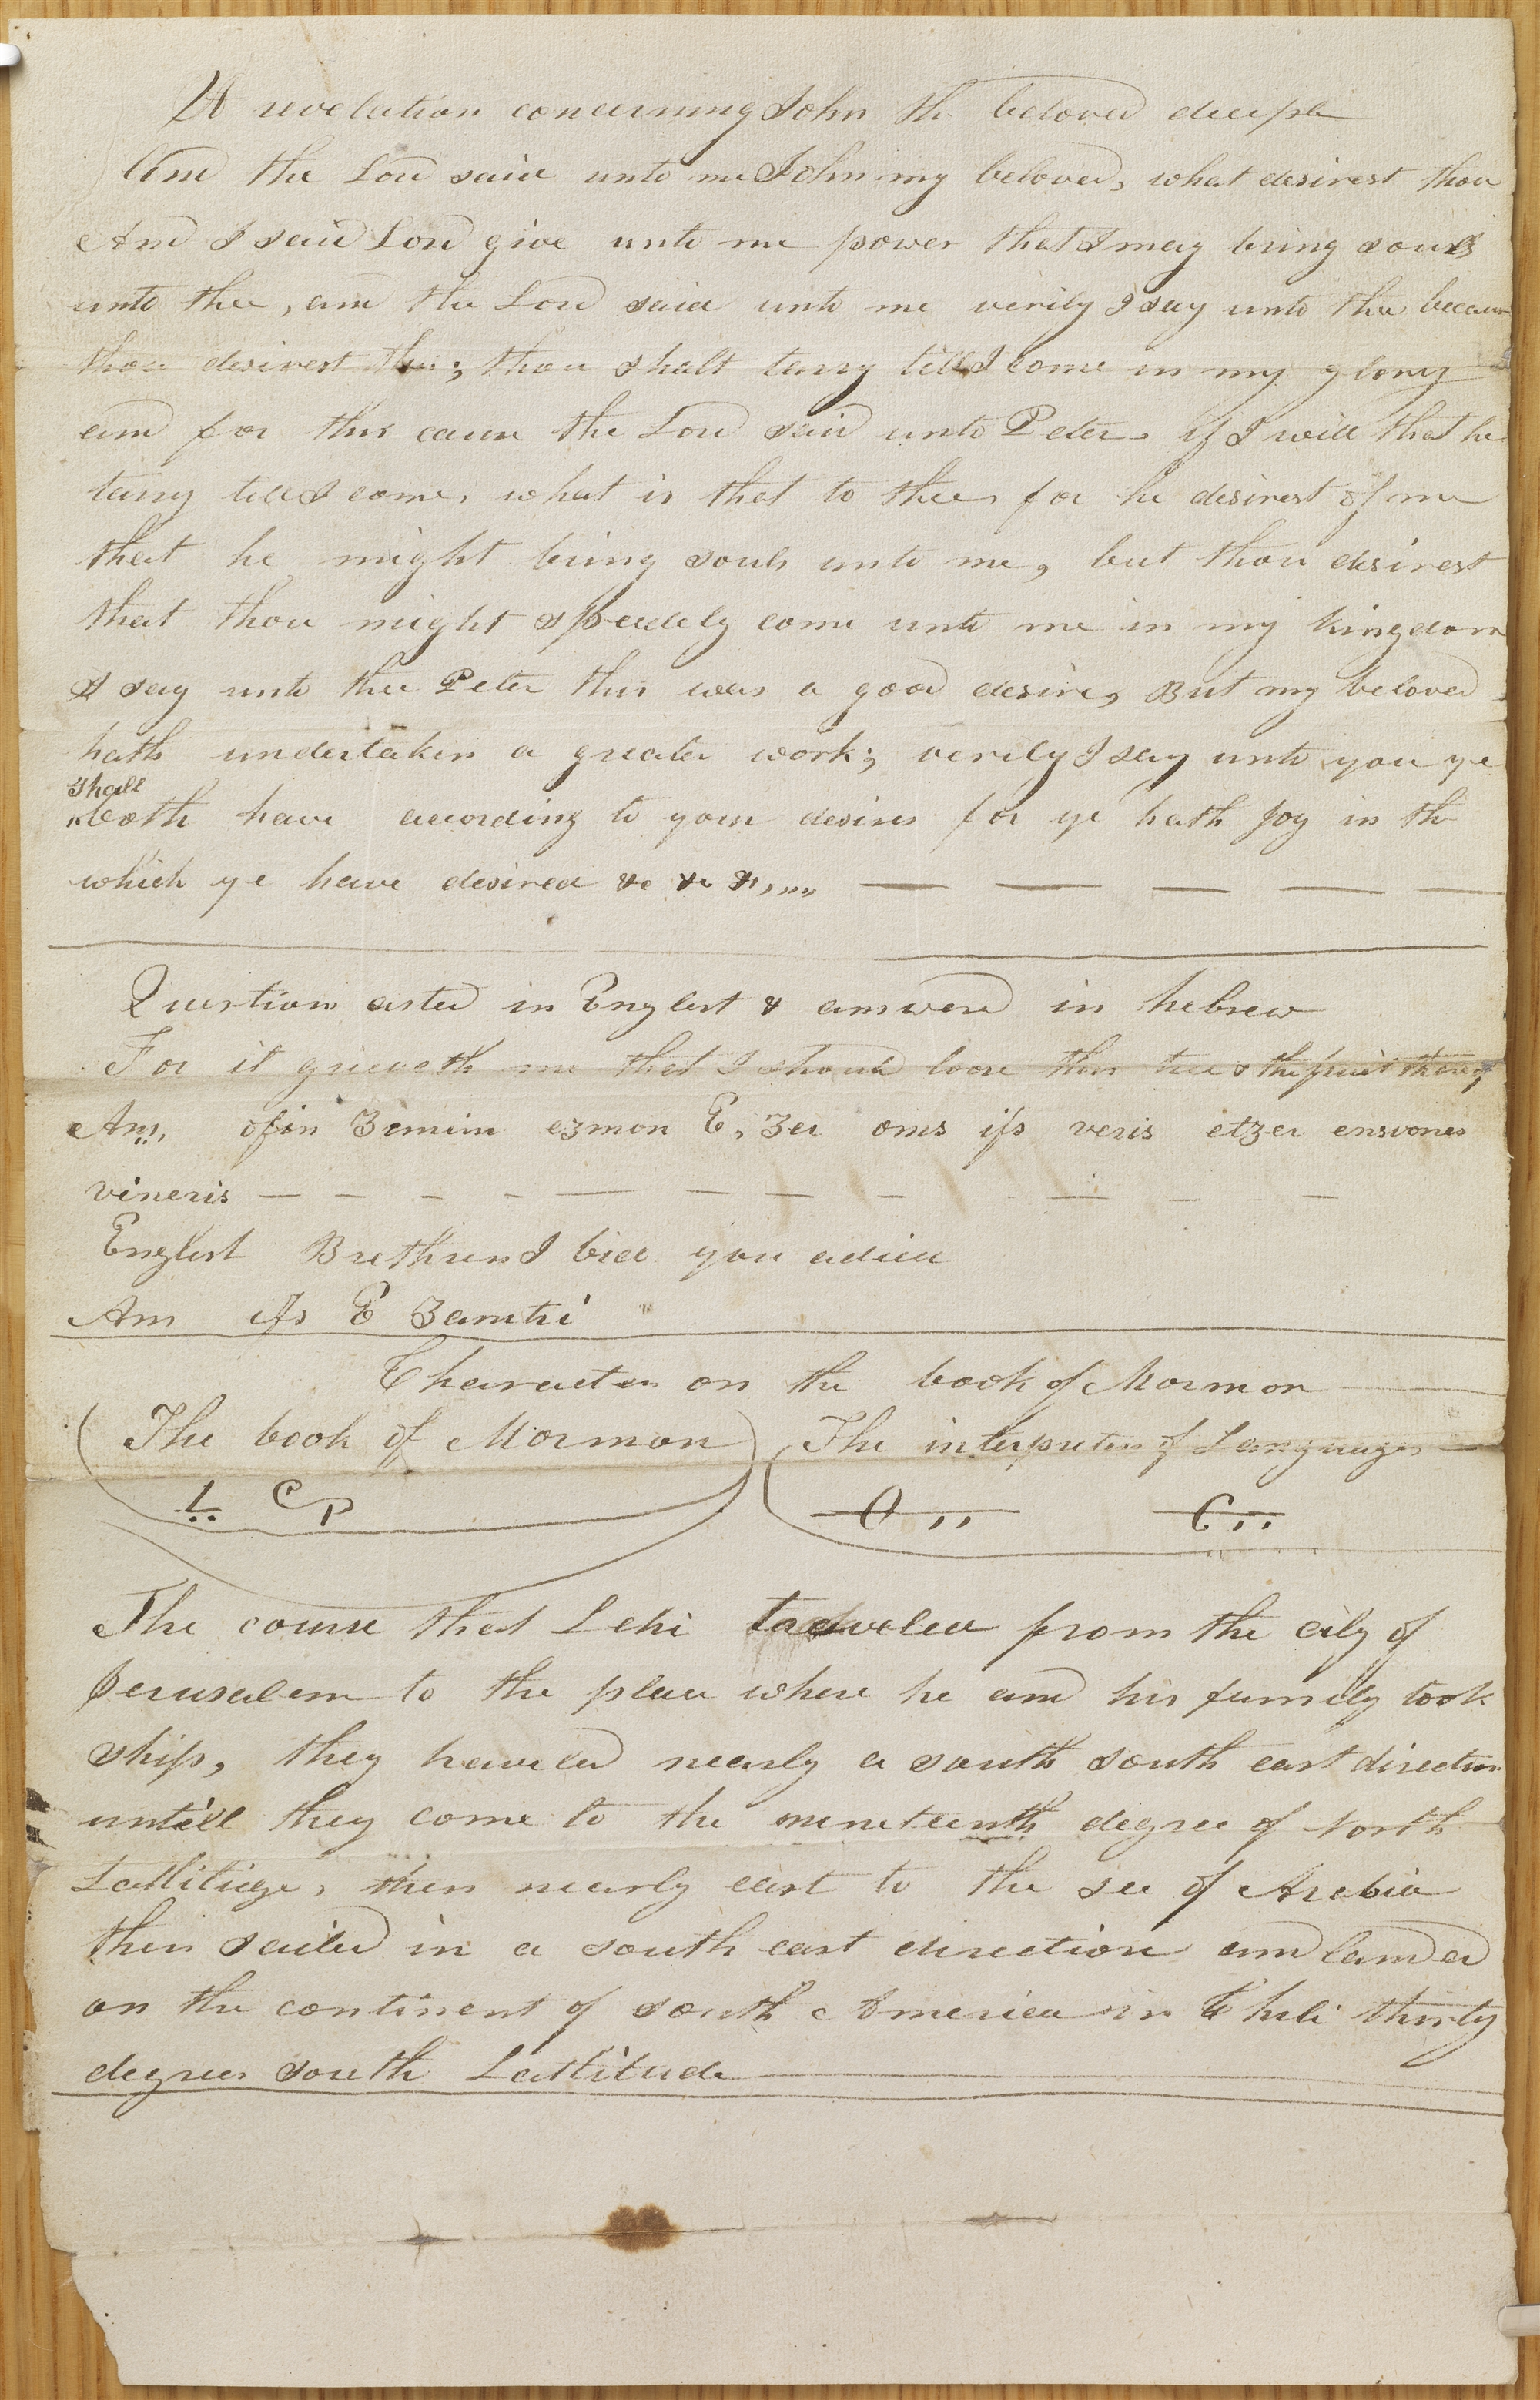 A revelation concerning John the beloved deciple
And the Lord said unto me John my beloved, what desirest thou
And I said Lord give unto me power that I may bring souls
unto thee, and the Lord said unto me verily I say unto thee because
thou desirest this; thou shalt tarry till I come in my glory
and for this cause the Lord said unto Peter if I will that he
tarry till I come, what is that to thee, for he desirest of me
that he might bring souls unto me, but thou desirest
that thou might speedely come unto me in my kingdom
I say unto thee Peter this was a good desire, But my beloved
hath undertaken a greater work; verily I say unto you ye
shall
both have according to your desires for ye hath Joy in th
which ye have desired &c &c &c,,,,
Question asked in English & answerd in hebrew
For it grieveth me that I should loose this tree & the fruit thereof
Ans, ofin Zemim ezmon E, Zer oms ifs veris etzer ensvones
vineris — — — — — — — — — — — —
English Brethren I bid you adieu
Ans ifs E Zamtri
Character on the book of Mormon
The book of Mormon The interpreters of Languages
The course that Lehi traveled from the city of
Jerusalem to the place where he and his family took
ship, they traveled nearly a south south east direction
untill they come to the nineteenth degree of North
Lattitude, then nearly east to the sea of Arabia
then sailed in a south east direction and landed
on the continent of south America in Chili thirty
degrees south Lattitude